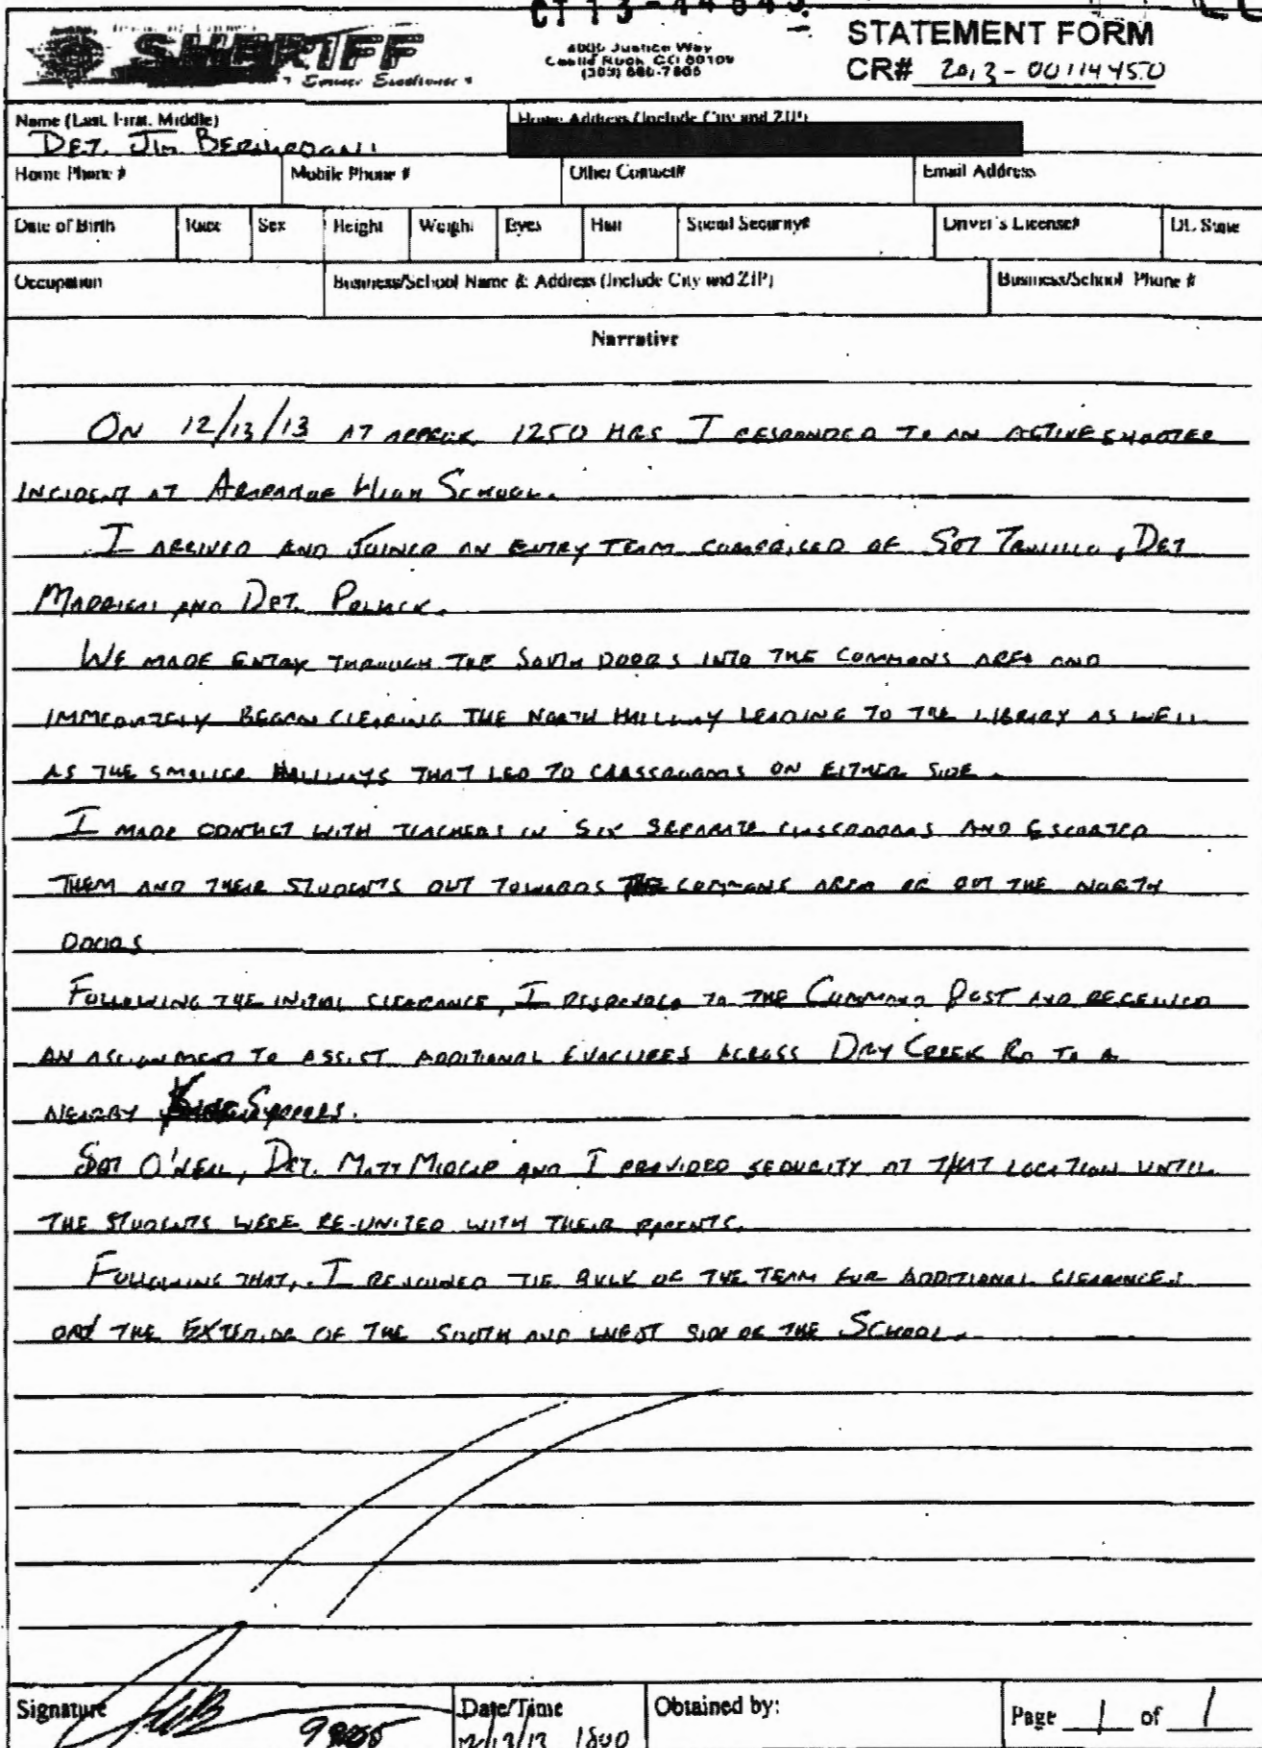 SHERIFF
4000 Justice Way
Castle Rock, CO 80109
(303) 660-7505
STATEMENT FORM
CR# 2013-00114450
Name (Last, First, Middle)
Home Address (Include City and ZIP)
DET. JIM
Home Phone #
Mobile Phone #
Other Contact#
Email Address
Date of Birth
Race
Sex
Height
Weight
Eyes
Hair
Social Security#
Driver's License#
DL State
Occupation
Business/School Name & Address (Include City and ZIP)
Business/School Phone #
Narrative
ON 12/13/13 AT APPROX 1250 HRS I RESPONDED TO AN ACTIVE SHOOTER
INCIDENT AT ARAPAHOE HIGH SCHOOL.
I ARRIVED AND JOINED AN ENTRY TEAM COMPRISED OF SGT TRUJILLO, DET
MADRIGAL AND DET. POLLACK.
WE MADE ENTRY THROUGH THE SOUTH DOORS INTO THE COMMONS AREA AND
IMMEDIATELY BEGAN CLEARING THE NORTH HALLWAY LEADING TO THE LIBRARY AS WELL
AS THE SMALLER HALLWAYS THAT LED TO CLASSROOMS ON EITHER SIDE.
I MADE CONTACT WITH TEACHERS IN SIX SEPARATE CLASSROOMS AND ESCORTED
THEM AND THEIR STUDENTS OUT TOWARDS THE COMMONS AREA OR OUT THE NORTH
DOORS
FOLLOWING THE INITIAL CLEARANCE, I RESPONDED TO THE COMMAND POST AND RECEIVED
AN ASSIGNMENT TO ASSIST ADDITIONAL EVACUEES ACROSS DRY CREEK RD TO A
NEARBY KING SOOPERS.
SGT O'NEAL, DET. MATT MIDCAP AND I PROVIDED SECURITY AT THAT LOCATION UNTIL
THE STUDENTS WERE RE-UNITED WITH THEIR PARENTS.
FOLLOWING THAT, I REJOINED THE BULK OF THE TEAM FOR ADDITIONAL CLEARANCES
THE EXTERIOR OF THE SOUTH AND WEST SIDE OF THE SCHOOL.
Signature
Date/Time
12/13/13 1800
Obtained by:
Page 1 of 1